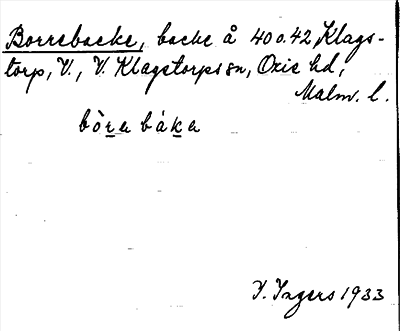 Borrebacke, backe å 40 o. 42, Klags-
torp, V., V. Klagstorps sn, Oxie hd,
Malm. l.
bòra bάka
I. Ingers 1933